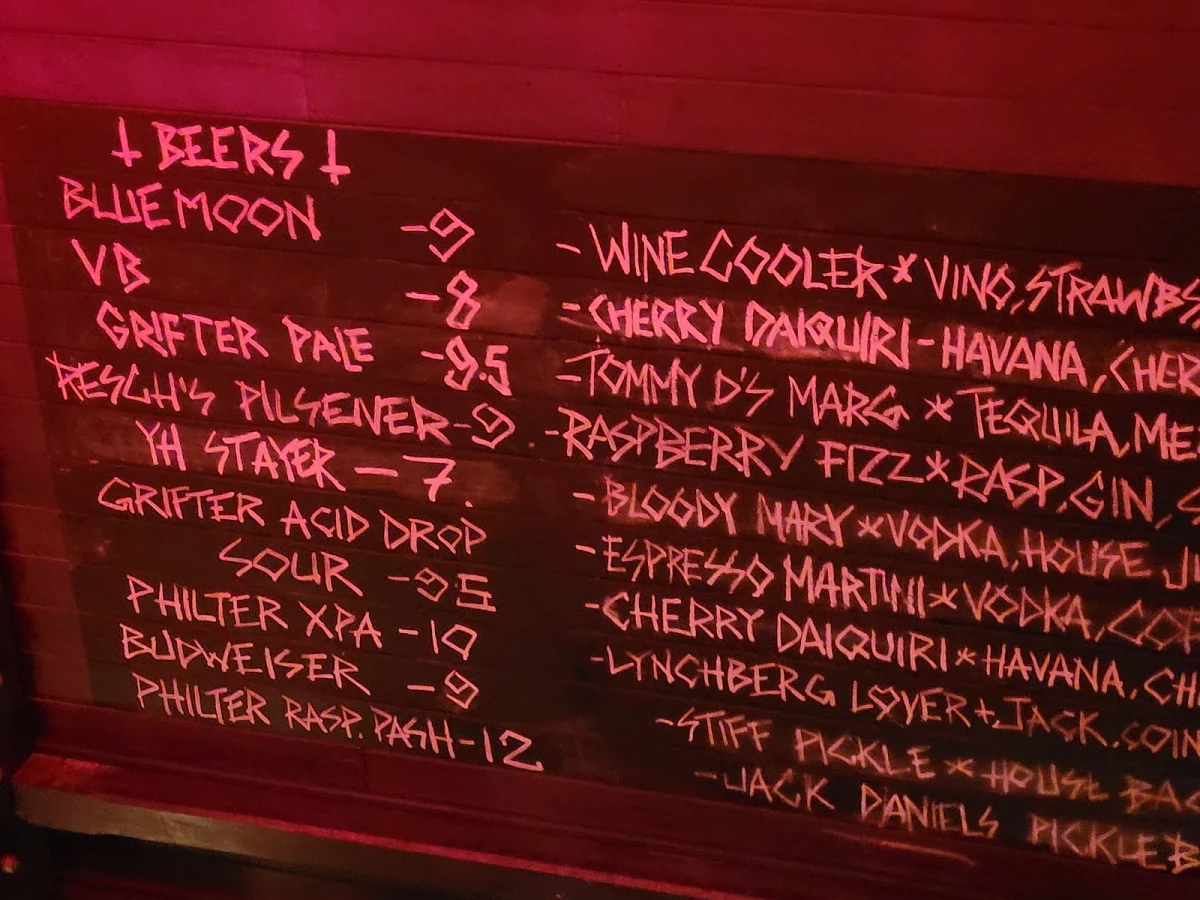 BEERS
BLUE MOON -9
VB -8
GRIFTER PALE -9.5
RESCH'S PILSENER-9
YH STAYER — 7.
GRIFTER ACID DROP
SOUR -95
PHILTER XPA -10
BUDWEISER -9
PHILTER RASP. PASH-12
- WINE COOLER * VINO, STRAWBS
- CHERRY DAIQUIRI - HAVANA, CHER
- TOMMY D'S MARG * TEQUILA, ME
- RASPBERRY FIZZ * RASP, GIN,
- BLOODY MARY * VODKA, HOUSE
- ESPRESSO MARTINI * VODKA, COF
- CHERRY DAIQUIRI * HAVANA, CH
- LYNCHBERG LOVER + JACK. COIN
- STIFF PICKLE * HOUSE BAC
- JACK DANIELS PICKLEB